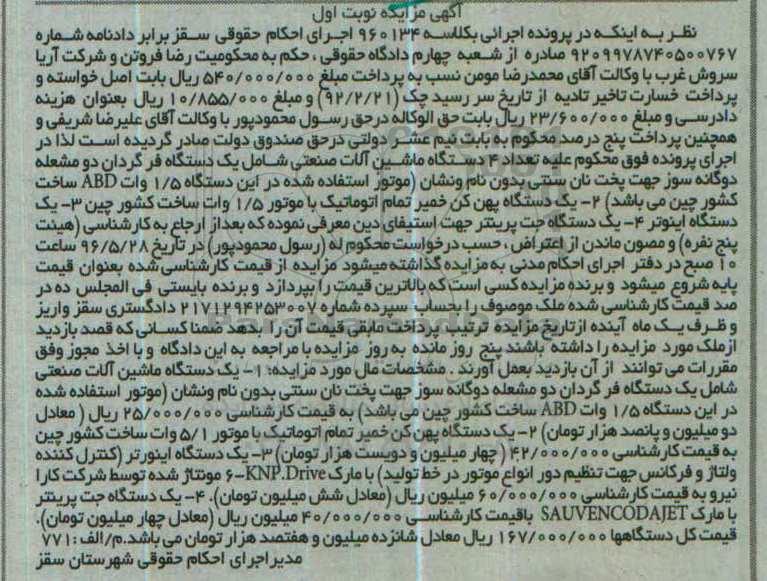 آگهی مزایده نوبت اول
نظر به اینکه در پرونده اجرائی بکلاسه ۹۶۰۱۳۴ اجرای احکام حقوقی سقز برابر دادنامه شماره
۹۲۰۹۹۷۸۷۴۰۵۰۰۷۶۷ صادره از شعبه چهارم دادگاه حقوقی ، حکم به محکومیت رضا فروتن و شرکت آریا
سروش غرب با وکالت آقای محمدرضا مومن نسب به پرداخت مبلغ ۵۴۰/۰۰۰/۰۰۰ ریال بابت اصل خواسته و
پرداخت خسارت تاخیر تادیه از تاریخ سر رسید چک (۹۲/۲/۲۱) و مبلغ ۱۰/۸۵۵/۰۰۰ ریال بعنوان هزینه
دادرسی و مبلغ ۲۳/۶۰۰/۰۰۰ ریال بابت حق الوکاله درحق رسول محمودپور با وکالت آقای علیرضا شریفی و
همچنین پرداخت پنج درصد محکوم به بابت نیم عشر دولتی درحق صندوق دولت صادر گردیده است لذا در
اجرای پرونده فوق محکوم علیه تعداد ۴ دستگاه ماشین آلات صنعتی شامل یک دستگاه فر گردان دو مشعله
دوگانه سوز جهت پخت نان سنتی بدون نام ونشان (موتور استفاده شده در این دستگاه ۱/۵ وات ABD ساخت
کشور چین می باشد) ۲- یک دستگاه پهن کن خمیر تمام اتوماتیک با موتور ۱/۵ وات ساخت کشور چین ۳- یک
دستگاه اینوتر ۴- یک دستگاه جت پرینتر جهت استیفای دین معرفی نموده که بعداز ارجاع به کارشناسی (هیئت
پنج نفره) و مصون ماندن از اعتراض ، حسب درخواست محکوم له (رسول محمودپور) در تاریخ ۹۶/۵/۲۸ ساعت
۱۰ صبح در دفتر اجرای احکام مدنی به مزایده گذاشته میشود مزایده از قیمت کارشناسی شده بعنوان قیمت
پایه شروع میشود و برنده مزایده کسی است که بالاترین قیمت را بپردازد و برنده بایستی فی المجلس ده در
صد قیمت کارشناسی شده ملک موصوف را بحساب سپرده شماره ۲۱۷۱۲۹۴۲۵۳۰۰۷ دادگستری سقز واریز
و ظرف یک ماه آینده ازتاریخ مزایده ترتیب پرداخت مابقی قیمت آن را بدهد ضمنا کسانی که قصد بازدید
ازملک مورد مزایده را داشته باشند پنج روز مانده به روز مزایده با مراجعه به این دادگاه و با اخذ مجوز وفق
مقررات می توانند از آن بازدید بعمل آورند . مشخصات مال مورد مزایده: ۱- یک دستگاه ماشین آلات صنعتی
شامل یک دستگاه فر گردان دو مشعله دوگانه سوز جهت پخت نان سنتی بدون نام ونشان (موتور استفاده شده
در این دستگاه ۱/۵ وات ABD ساخت کشور چین می باشد) به قیمت کارشناسی ۲۵/۰۰۰/۰۰۰ ریال ( معادل
دو میلیون و پانصد هزار تومان) ۲- یک دستگاه پهن کن خمیر تمام اتوماتیک با موتور ۵/۱ وات ساخت کشور چین
به قیمت کارشناسی ۴۲/۰۰۰/۰۰۰ ( چهار میلیون و دویست هزار تومان) ۳- یک دستگاه اینورتر (کنترل کننده
ولتاژ و فرکانس جهت تنظیم دور انواع موتور در خط تولید) با مارک KNP.Drive-۶ مونتاژ شده توسط شرکت کارا
نیرو به قیمت کارشناسی ۶۰/۰۰۰/۰۰۰ میلیون ریال (معادل شش میلیون تومان). ۴- یک دستگاه جت پرینتر
با مارک SAUVENCODAJET باقیمت کارشناسی ۴۰/۰۰۰/۰۰۰ میلیون ریال (معادل چهار میلیون تومان).
قیمت کل دستگاهها ۱۶۷/۰۰۰/۰۰۰ ریال معادل شانزده میلیون و هفتصد هزار تومان می باشد.م/الف: ۷۷۱
مدیر اجرای احکام حقوقی شهرستان سقز